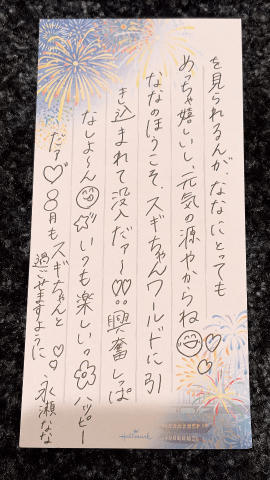 を見られるんが、ななにとっても
めっちゃ嬉しいし、元気の源やからね😊♡♡
ななのほうこそ、スギちゃんワールドに引
き込まれて没入だァ〜♡：興奮しっぱ
なしよ〜ん😊☆いつも楽しいっ✿ハッピー
だァ♡8月もスギちゃんと♡♡
過ごせますように 永瀬なな
Hallmark